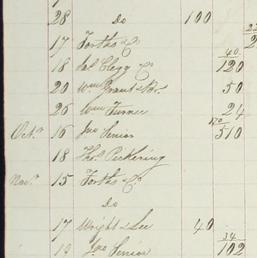 28 Do 100
17 Forths & Co
40
18 Saml Clegg & Co 120
20 Wm Grant & Br. 50
26 Wm Turner 24
170
Octr. 16 Jno Senior 510
18 Thos. Pickering
Novr. 15 Forths & Co.
Do
17 Wright & Lee 40
34
19 Jno Senior 102